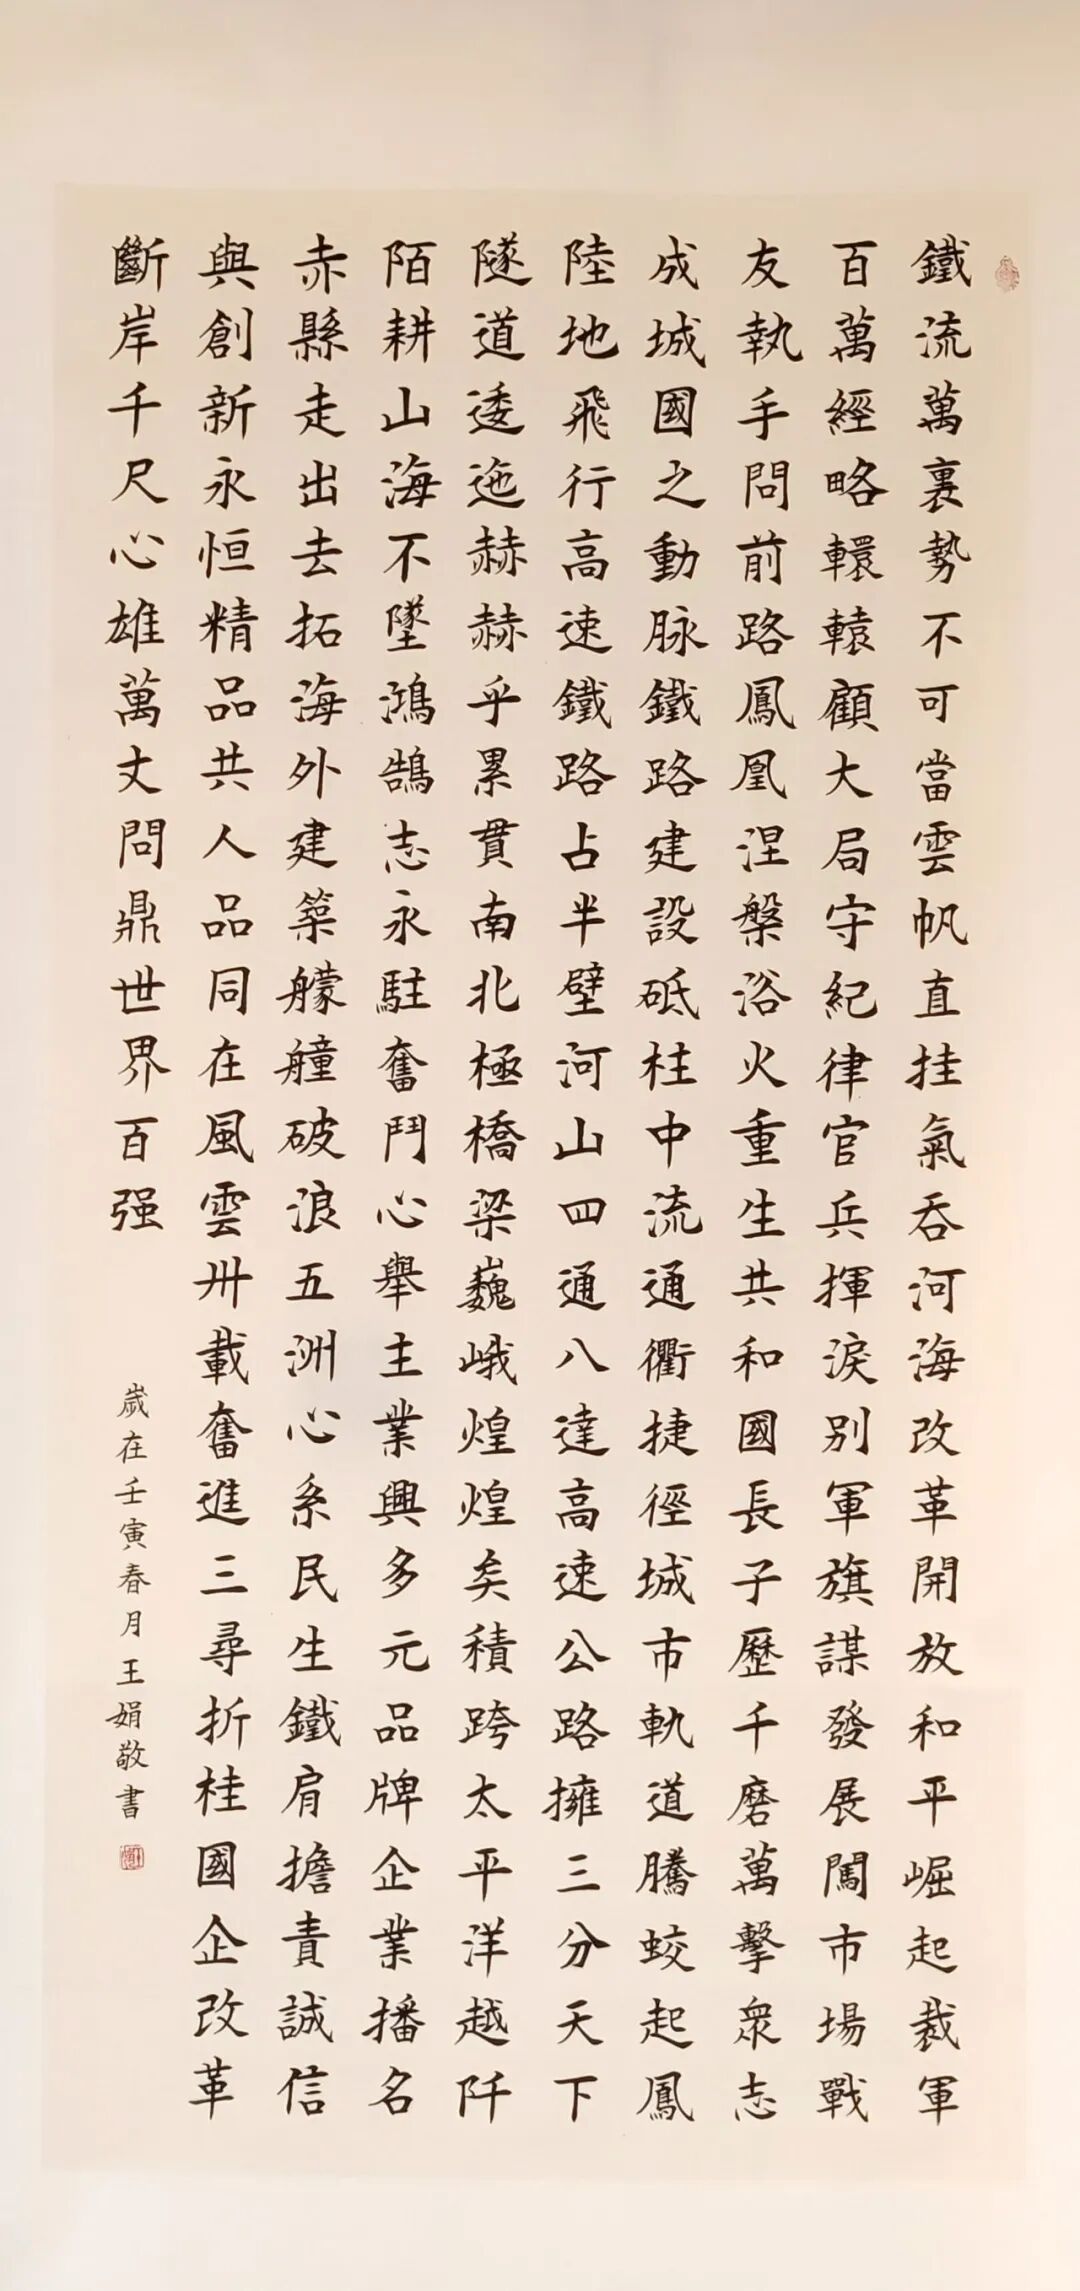 鐵流萬裏勢不可當雲帆直挂氣吞河海改革開放和平崛起裁軍
百萬經略轘轅顧大局守紀律官兵揮淚别軍旗謀發展闖市場戰
友執手問前路鳳凰涅槃浴火重生共和國長子歷千磨萬擊衆志
成城國之動脉鐵路建設砥柱中流通衢捷徑城市軌道騰蛟起鳳
陸地飛行高速鐵路占半壁河山四通八達高速公路擁三分天下
隧道逶迤赫赫乎累貫南北極橋梁巍峨煌煌矣積跨太平洋越阡
陌耕山海不墜鴻鵠志永駐奮鬥心舉主業興多元品牌企業播名
赤縣走出去拓海外建築艨艟破浪五洲心系民生鐵肩擔責誠信
與創新永恒精品共人品同在風雲卅載奮進三尋折桂國企改革
斷岸千尺心雄萬丈問鼎世界百强
歲在壬寅春月王娟敬書